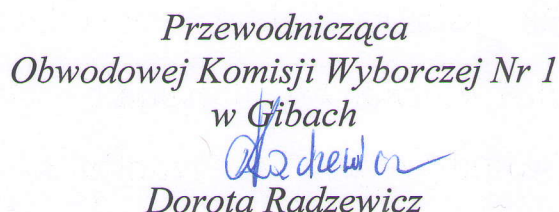 Przewodnicząca
Obwodowej Komisji Wyborczej Nr 1
w Gibach
Dorota Radzewicz